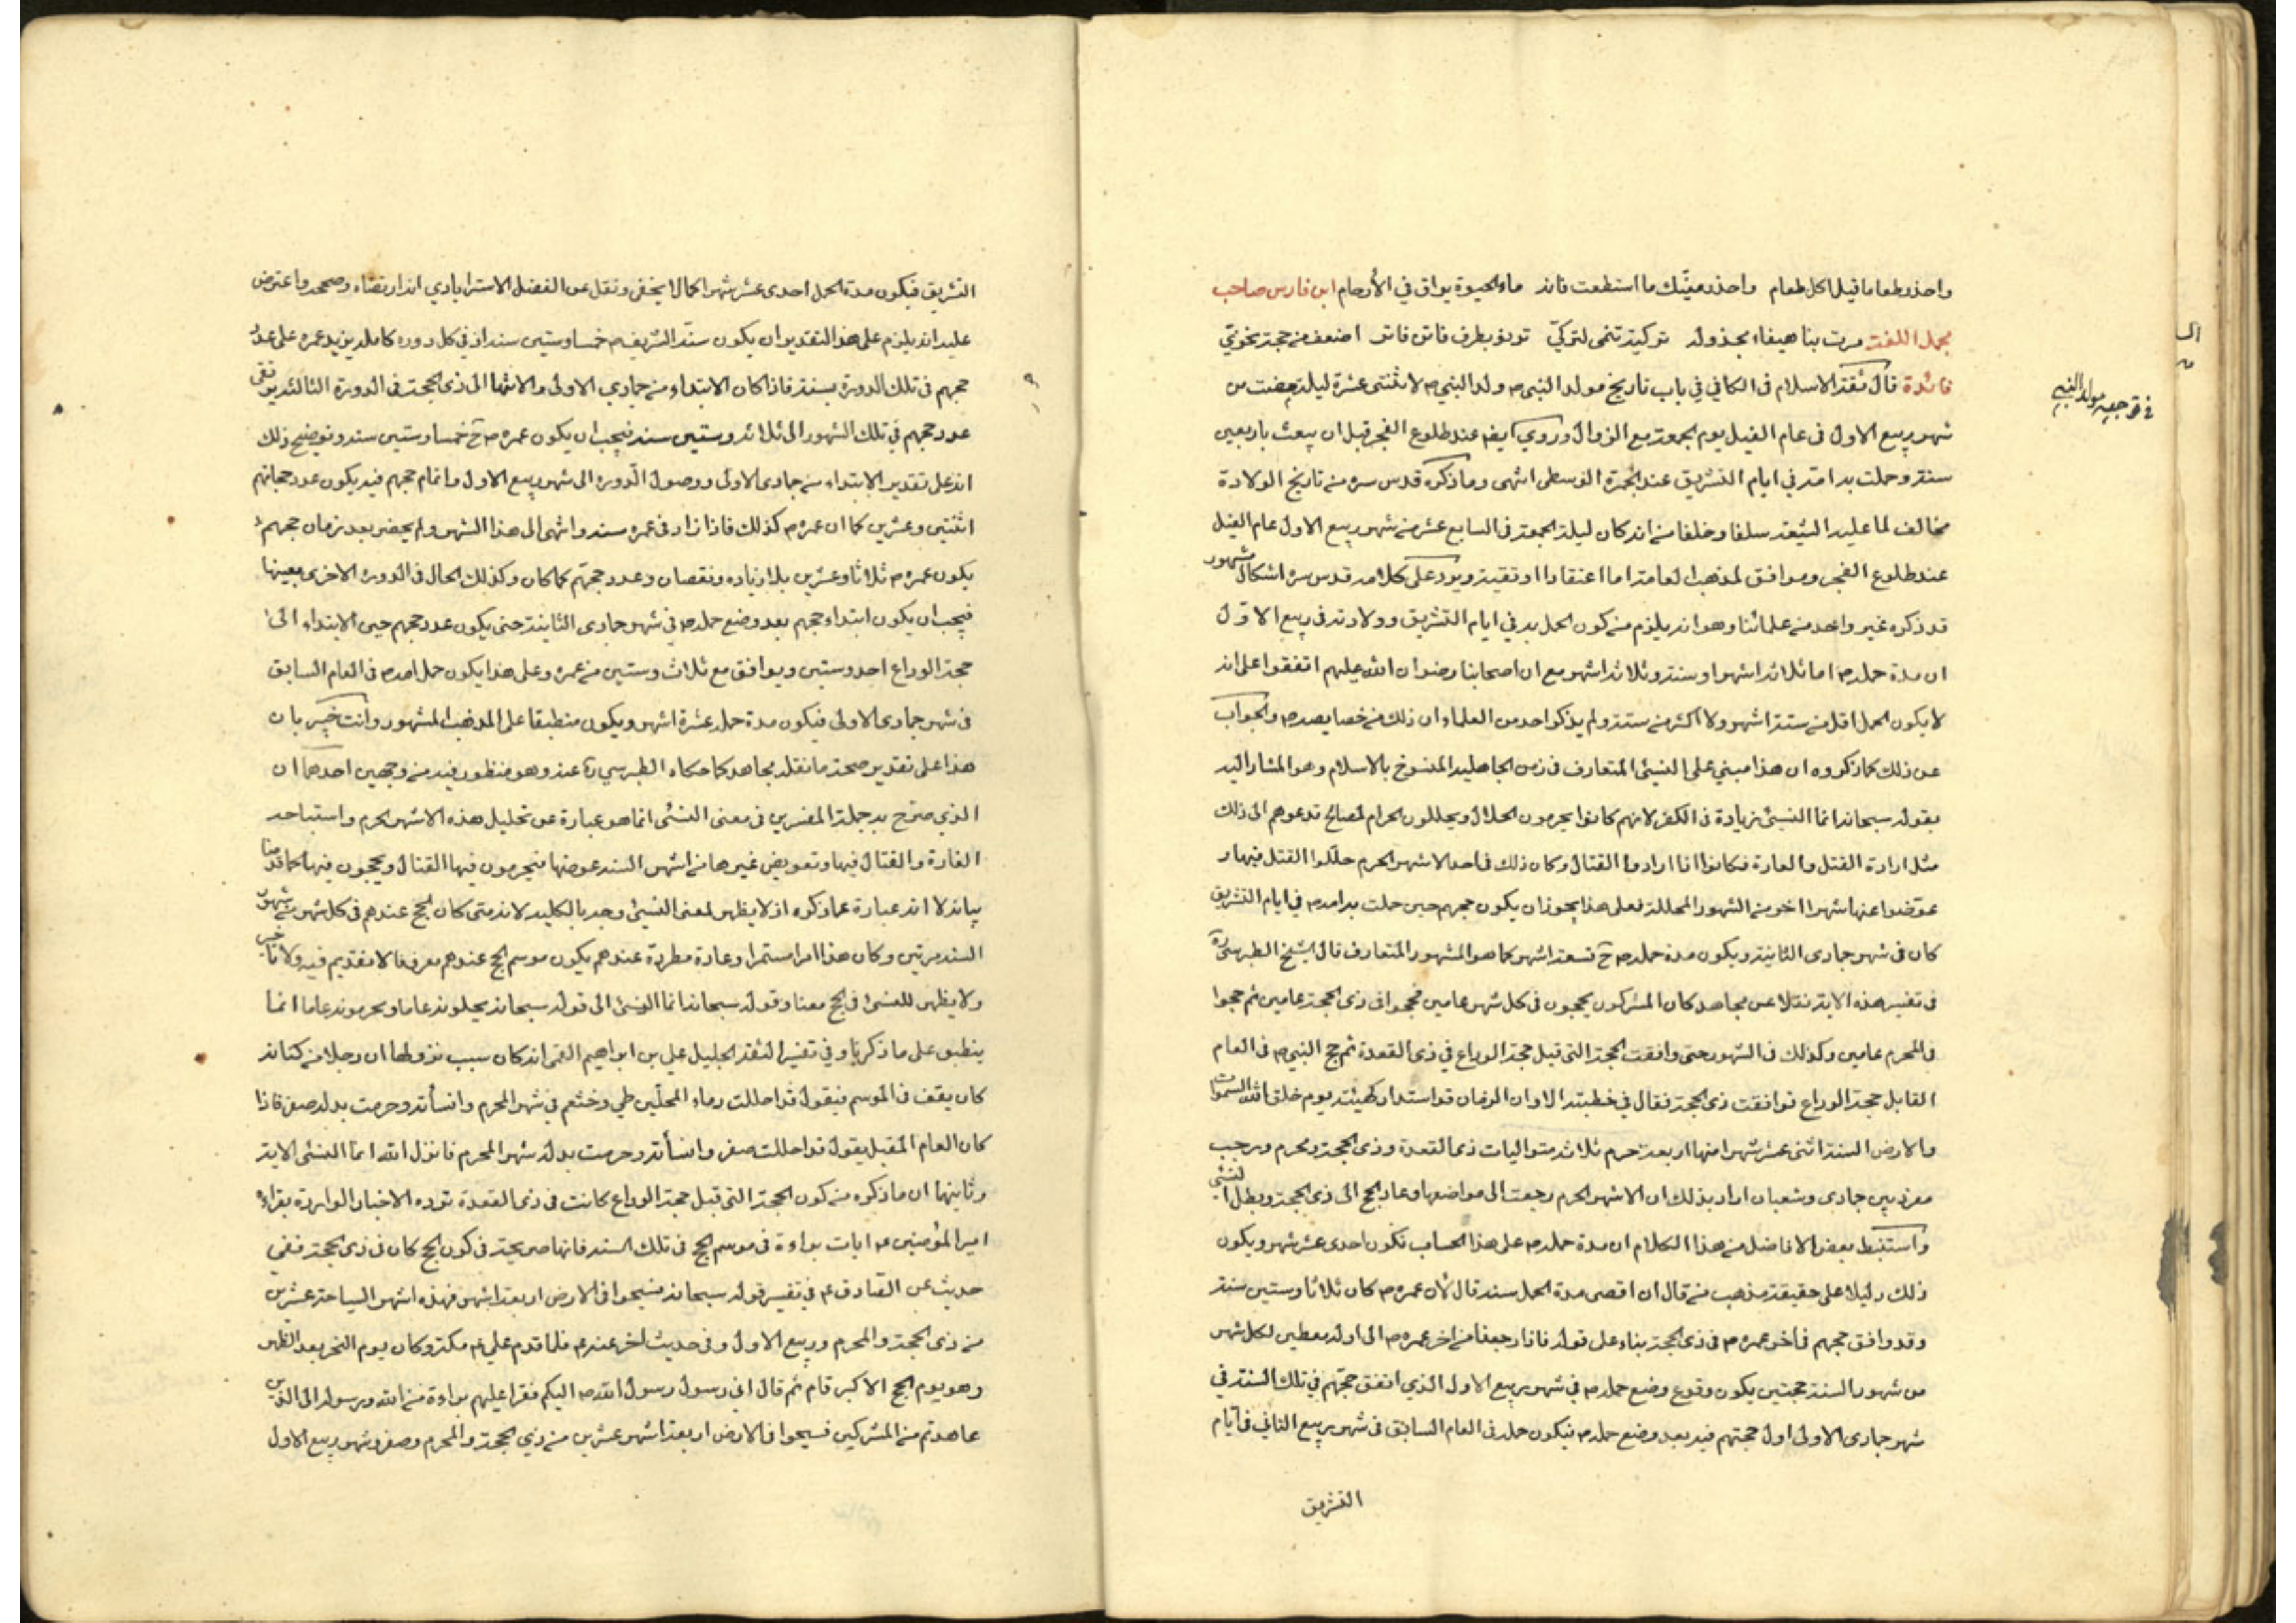 واحذر طعاما قبل اكل طعام واحذر منيّك ما استطعت فانه ماء الحيوة يراق في الأرحام ابن فارس صاحب
مجمل اللغة مرت بنا هيفاء مجدولة تركية تنمى لتركيّ ترنو بطرف فاتن فاتر اضعف من حجة نحويّ
فائدة قال ثقة الاسلام فى الكافي في باب تاريخ مولد النبي ص ولد النبي ص لاثنتى عشرة ليلة مضت من
شهر ربيع الاول فى عام الفيل يوم الجمعة مع الزوال وروي ايضا عند طلوع الفجر قبل ان يبعث باربعين
سنة وحملت به امه في ايام التشريق عند الجمرة الوسطى انتهى وما ذكره قدس سره من تاريخ الولادة
مخالف لما عليه الشيعة سلفا وخلفا من انه كان ليلة الجمعة فى السابع عشر من شهر ربيع الاول عام الفيل
عند طلوع الفجر وموافق لمذهب العامة اما اعتقادا او تقية ويرد على كلامه قدس سره اشكال مشهور
قد ذكره غير واحد من علمائنا وهو انه يلزم من كون الحمل به في ايام التشريق وولادته فى ربيع الاول
ان مدة حمله ص اما ثلاثة اشهر او سنة وثلاثة اشهر مع ان اصحابنا رضوان الله عليهم اتفقوا على انه
لا يكون الحمل اقل من ستة اشهر ولا اكثر من سنة ولم يذكر احد من العلماء ان ذلك من خصايصه ص والجواب
عن ذلك كما ذكروه ان هذا مبني على النسئ المتعارف فى زمن الجاهلية المنسوخ بالاسلام وهو المشار اليه
بقوله سبحانه انما النسئ زيادة فى الكفر لانهم كانوا يحرمون الحلال ويحللون الحرام لمصالح تدعوهم الى ذلك
مثل ارادة القتل والغارة فكانوا اذا ارادوا القتال وكان ذلك فى احد الاشهر الحرم حللوا القتل فيها و
عوّضوا عنها شهرا اخر من الشهور المحللة فعلى هذا يجوز ان يكون حجهم حين حملت به امه ص في ايام التشريق
كان فى شهر جمادى الثانية ويكون مدة حمله ص ح تسعة اشهر كما هو المشهور المتعارف قال الشيخ الطبرسي ره
فى تفسير هذه الاية نقلا عن مجاهد كان المشركون يحجون فى كل شهر عامين فحجوا فى ذى الحجة عامين ثم حجوا
فى المحرم عامين وكذلك فى الشهور حتى وافقت الحجة التى قبل حجة الوداع في ذى القعدة ثم حج النبي ص فى العام
القابل حجة الوداع فوافقت ذى الحجة فقال في خطبته الا وان الزمان قد استدار كهيئته يوم خلق الله السموات
والارض السنة اثنى عشر شهرا منها اربعة حرم ثلاثة متواليات ذى القعدة وذى الحجة ومحرم ورجب
مفرد بين جمادى وشعبان اراد بذلك ان الاشهر الحرم رجعت الى مواضعها وعاد الحج الى ذى الحجة وبطل النسئ
واستنبط بعض الافاضل من هذا الكلام ان مدة حمله ص على هذا الحساب تكون احدى عشر شهر ويكون
ذلك دليلا على حقيقة مذهب من قال ان اقصى مدة الحمل سنة قال لأن عمره ص كان ثلاثا وستين سنة
وقد وافق حجهم فى اخر عمره ص فى ذى الحجة بناء على قوله فاذا رجعنا من اخر عمره ص الى اوله معطين لكل شهر
من شهور السنة حجتين يكون وقوع وضع حمله ص في شهر ربيع الاول الذي اتفق حجتهم في تلك السنة في
شهر جمادى الاولى اول حجتهم فيه بعد وضع حمله ص فيكون حمله فى العام السابق فى شهر ربيع الثاني فى أيام
التشريق
في توجيه مولد النبي
التشريق فيكون مدة الحمل احدى عشر شهرا كما لا يخفى ونقل عن الفضل الاسترابادي انه ارتضاه وصححه واعترض
عليه انه يلزم على هذا التقدير ان يكون سنّه الشريف ص خمسا وستين سنة اذ في كل دوره كاملة يزيد عمره على عدد
حجهم فى تلك الدورة بسنة فاذا كان الابتداء من جمادي الاولى والانتهاء الى ذى الحجة فى الدورة الثالثة يرتقى
عدد حجهم في تلك الشهور الى ثلاثه وستين سنة فيجب ان يكون عمره ص ح خمسا وستين سنة وتوضيح ذلك
انه على تقدير الابتداء من جمادى الاولى ووصول الدوره الى شهر ربيع الاول واتمام حجهم فيه يكون عدد حجاتهم
اثنتين وعشرين كما ان عمره ص كذلك فاذا زاد فى عمره سنة وانتهى الى هذا الشهر ولم يحضر بعد زمان حجهم
يكون عمره ص ثلاثا وعشرين بلا زياده ونقصان وعدد حجهم كما كان وكذلك الحال فى الدوره الاخرى بعينها
فيجب ان يكون ابتداء حجهم بعد وضع حمله ص في شهر جمادى الثانية حتى يكون عدد حجهم حين الابتداء الى
حجة الوداع احد وستين ويوافق مع ثلاث وستين من عمره وعلى هذا يكون حمل امه ص فى العام السابق
فى شهر جمادى الاولى فيكون مدة حمله عشرة اشهر ويكون منطبقا على المذهب المشهور وانت خبير بان
هذا على تقدير صحة ما نقله مجاهد كما حكاه الطبرسي ره عنه وهو منظور فيه من وجهين احدهما ان
الذي صرّح به جملة المفسرين فى معنى النسئ انما هو عبارة عن تحليل هذه الاشهر الحرم واستباحة
الغارة والقتال فيها وتعويض غيرها من اشهر السنة عوضها فيحرمون فيها القتال ويحجون فيها كما قدمنا
بيانه لا انه عبارة عما ذكره اذ لا يظهر لمعنى النسئ وجه بالكلية لانه متى كان الحج عندهم فى كل شهر من شهور
السنة مرتين وكان هذا امرا مستمرا وعادة مطردة عندهم يكون موسم الحج عندهم معروفا لا تقديم فيه ولا تاخير
ولا يظهر للنسئ فى الحج معنا وقوله سبحانه انما النسئ الى قوله سبحانه يحلونه عاما ويحرمونه عاما انما
ينطبق على ما ذكرنا وفي تفسير الثقة الجليل علي بن ابراهيم القمى انه كان سبب نزولها ان رجلا من كنانه
كان يقف فى الموسم فيقول قد احللت دماء المحلّين طي وخثعم في شهر المحرم وانسأته وحرمت بدله صفر فاذا
كان العام المقبل يقول قد احللت صفر وانسأته وحرمت بدله شهر المحرم فانزل الله انما النسئ الاية
وثانيهما ان ما ذكره من كون الحجة التى قبل حجة الوداع كانت فى ذى القعدة ترده الاخبار الواردة بقراءة
امير المؤمنين ع ايات براءة فى موسم الحج فى تلك السنة فانها صريحة فى كون الحج كان فى ذى الحجة ففي
حديث عن الصادق ع في تفسير قوله سبحانه فسيحوا فى الارض اربعة اشهر فهذه اشهر السياحة عشرين
من ذى الحجة والمحرم وربيع الاول وفى حديث اخر عنه ع فلما قدم علي ع مكة وكان يوم النحر بعد الظهر
وهو يوم الحج الاكبر قام ثم قال اني رسول رسول الله ص اليكم فقرا عليهم براءة من الله ورسوله الى الذين
عاهدتم من المشركين فسيحوا فى الارض اربعة اشهر عشرين من ذي الحجة والمحرم وصفر وشهر ربيع الاول